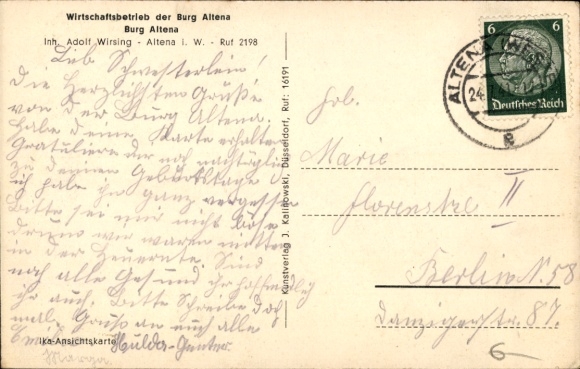 Wirtschaftsbetrieb der Burg Altena
Burg Altena
Inh. Adolf Wirsing - Altena i. W. - Ruf 2198
Lieb. Schwesterlein!
Die Herzlichsten Grüße
von der Burg Altena.
Habe deine Karte erhalten
Gratuliere dir noch nachträglich
zu deinem Geburtstage
ich habe ihn ganz vergessen
Bitte sei mir nicht böse
denn wir waren mitten
in der Heuernte. Sind
noch alle Gesund ihr hoffendlich
ihr auch. Bitte Schreibe doch
mal. Gruß an euch alle
Hulda-Gunter
Ika-Ansichtskarte
Kunstverlag J. Kalinowski, Düsseldorf, Ruf: 16191
6 6
Deutsches Reich
ALTENA (WESTF)
24.
e
Marie
II
Berlin N 58
Danzigerstr 87.
6-